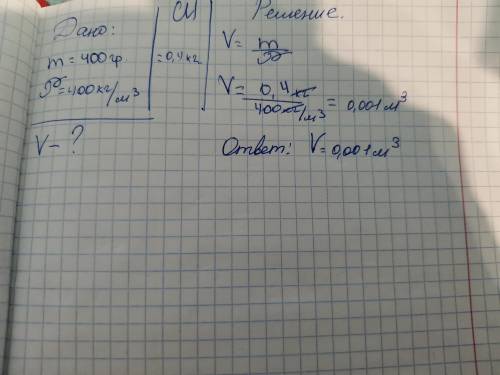 Дано:
m = 400 гр
ρ = 400 кг/м³
V - ?
СИ
= 0,4 кг
Решение.
V = m/ρ
V = 0,4 кг / 400 кг/м³ = 0,001 м³
Ответ: V = 0,001 м³